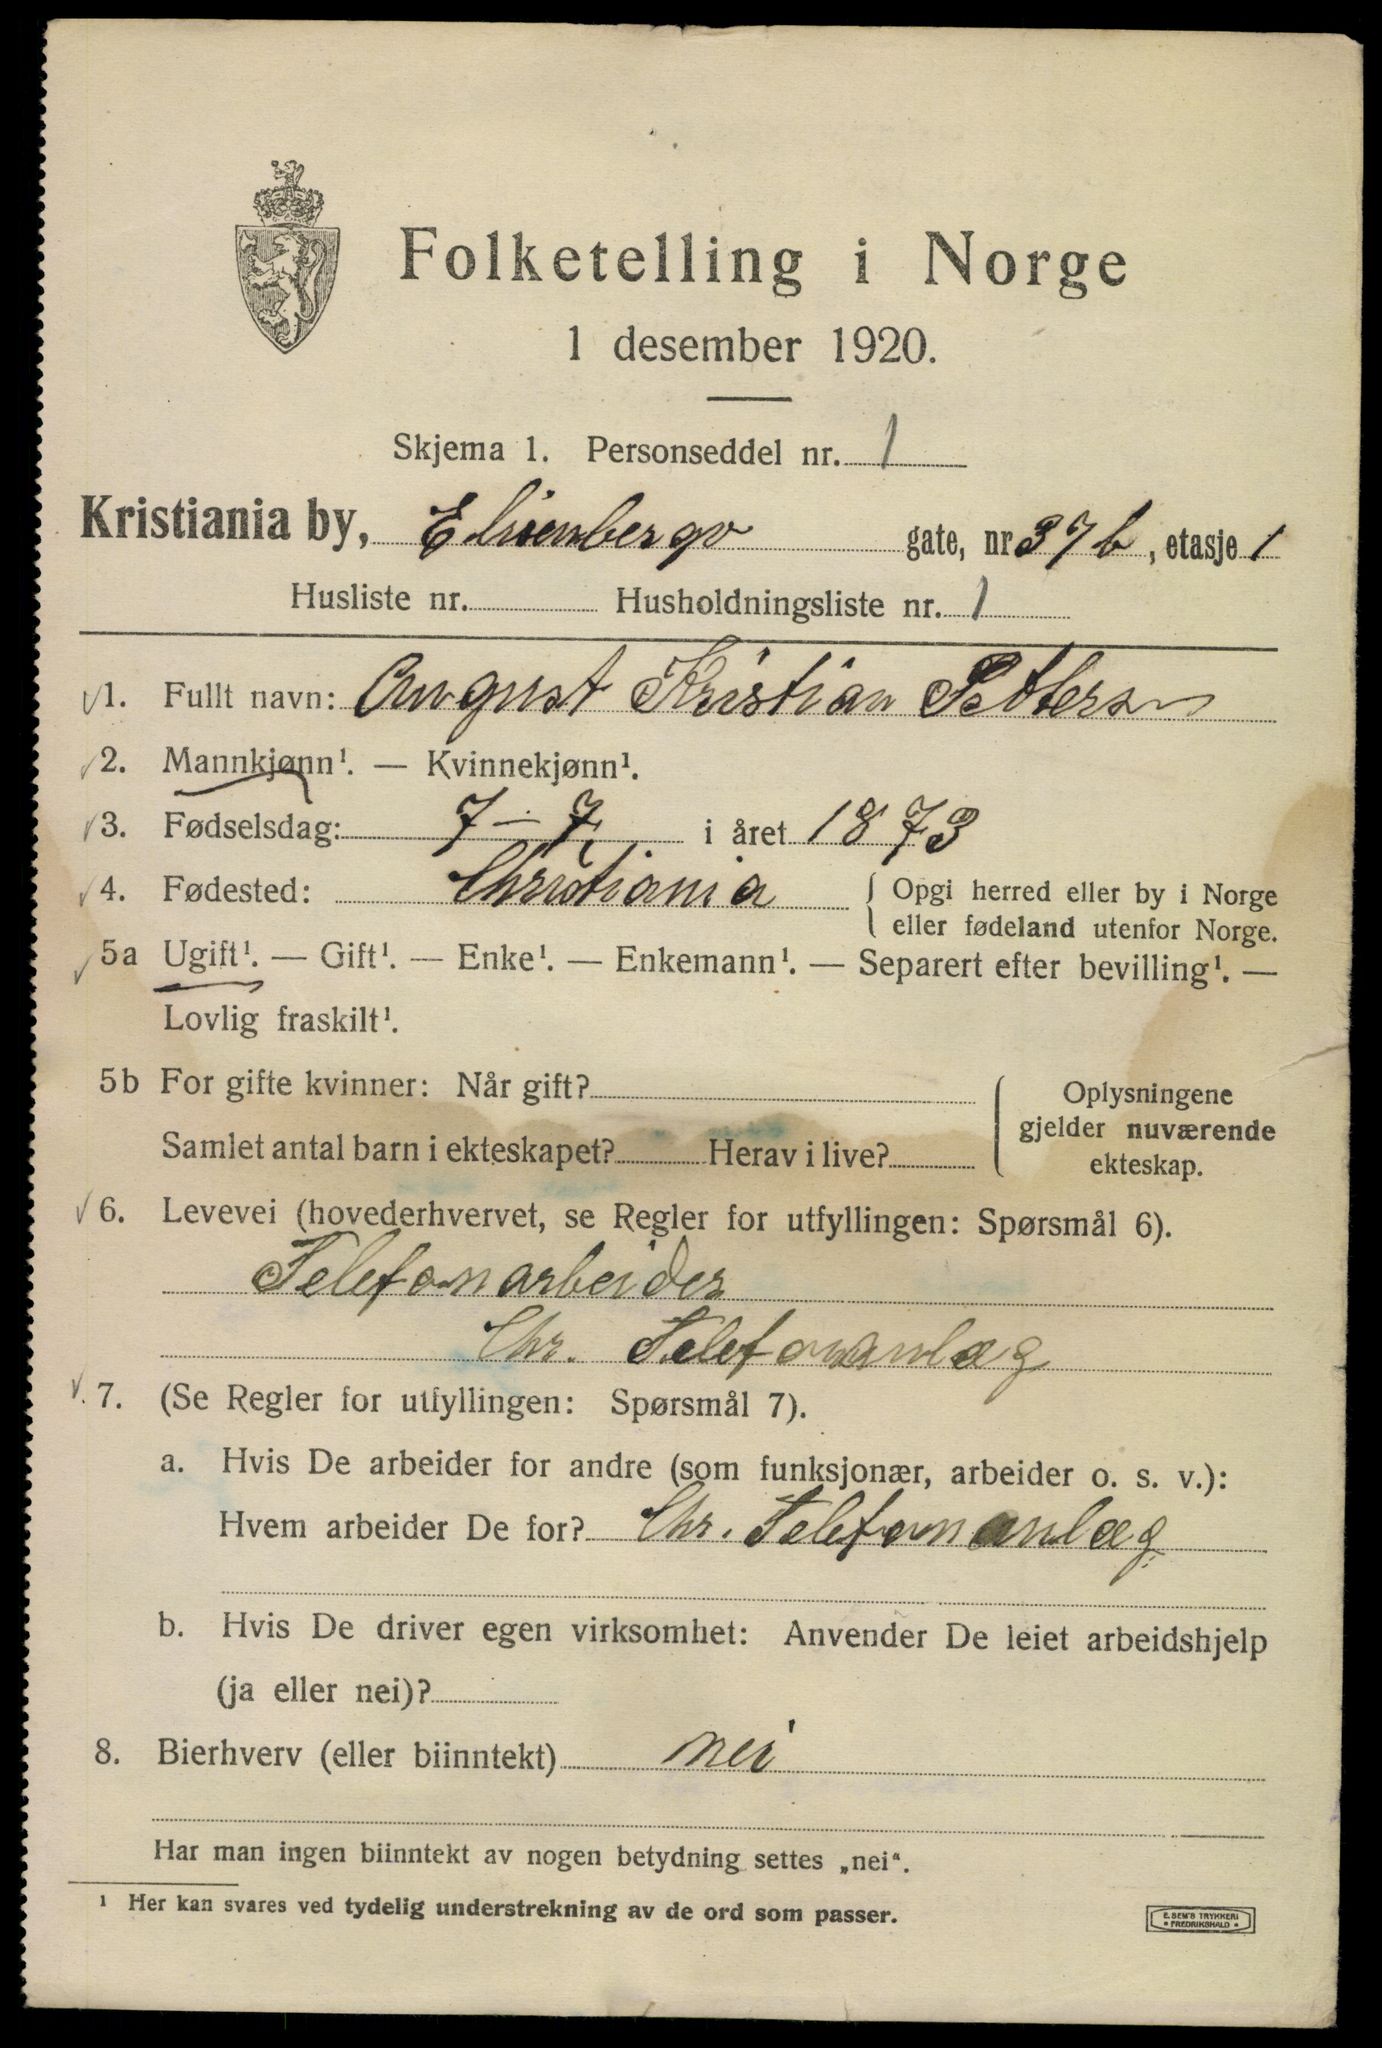 Folketelling i Norge
1 desember 1920.
Skjema 1. Personseddel nr. 1
Kristiania by, Elisenbergv gate, nr 37b, etasje 1
Husliste nr. Husholdningsliste nr. 1
1. Fullt navn: August Kristian Petters
2. Mannkjønn¹. — Kvinnekjønn¹.
3. Fødselsdag: 7 – 7. i året 1873
4. Fødested: Christiania { Opgi herred eller by i Norge
eller fødeland utenfor Norge.
5a Ugift¹. — Gift¹. — Enke¹. — Enkemann¹. — Separert efter bevilling¹. —
Lovlig fraskilt¹.
5b For gifte kvinner: Når gift? { Oplysningene
gjelder nuværende
Samlet antal barn i ekteskapet? Herav i live? ekteskap.
6. Levevei (hovederhvervet, se Regler for utfyllingen: Spørsmål 6).
Telefonarbeider
Chr. Telefonanlæg
7. (Se Regler for utfyllingen: Spørsmål 7).
a. Hvis De arbeider for andre (som funksjonær, arbeider o. s. v.):
Hvem arbeider De for? Chr. Telefonanlæg
b. Hvis De driver egen virksomhet: Anvender De leiet arbeidshjelp
(ja eller nei)?
8. Bierhverv (eller biinntekt) nei
Har man ingen biinntekt av nogen betydning settes „nei“.
¹ Her kan svares ved tydelig understrekning av de ord som passer.
E. SEM'S TRYKKERI
• FREDRIKSHALD •